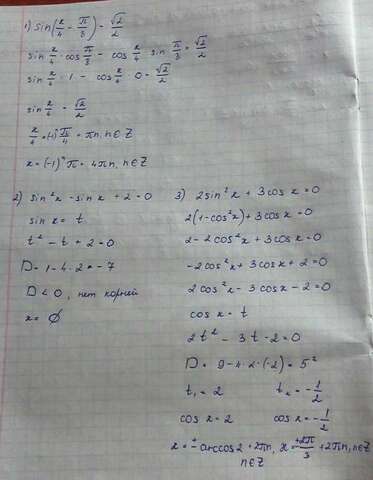 1) sin(x/4 - π/3) = √2/2
sin x/4 · cos π/3 - cos x/4 · sin π/3 = √2/2
sin x/4 · 1 - cos x/4 · 0 = √2/2
sin x/4 = √2/2
x/4 = (-1)ⁿ π/4 = πn, n∈Z
x = (-1)ⁿ π = 4πn, n∈Z
2) sin²x - sin x + 2 = 0
sin x = t
t² - t + 2 = 0
D = 1 - 4·2 = -7
D < 0, нет корней
x = ∅
3) 2sin²x + 3cosx = 0
2(1-cos²x) + 3cosx = 0
2 - 2cos²x + 3cosx = 0
-2cos²x + 3cosx + 2 = 0
2cos²x - 3cosx - 2 = 0
cosx = t
2t² - 3t - 2 = 0
D = 9 - 4·2·(-2) = 5²
t₁ = 2 t₂ = -1/2
cosx = 2 cosx = -1/2
x = ± arccos2 + 2πn, x = ±2π/3 + 2πn, n∈Z
n∈Z